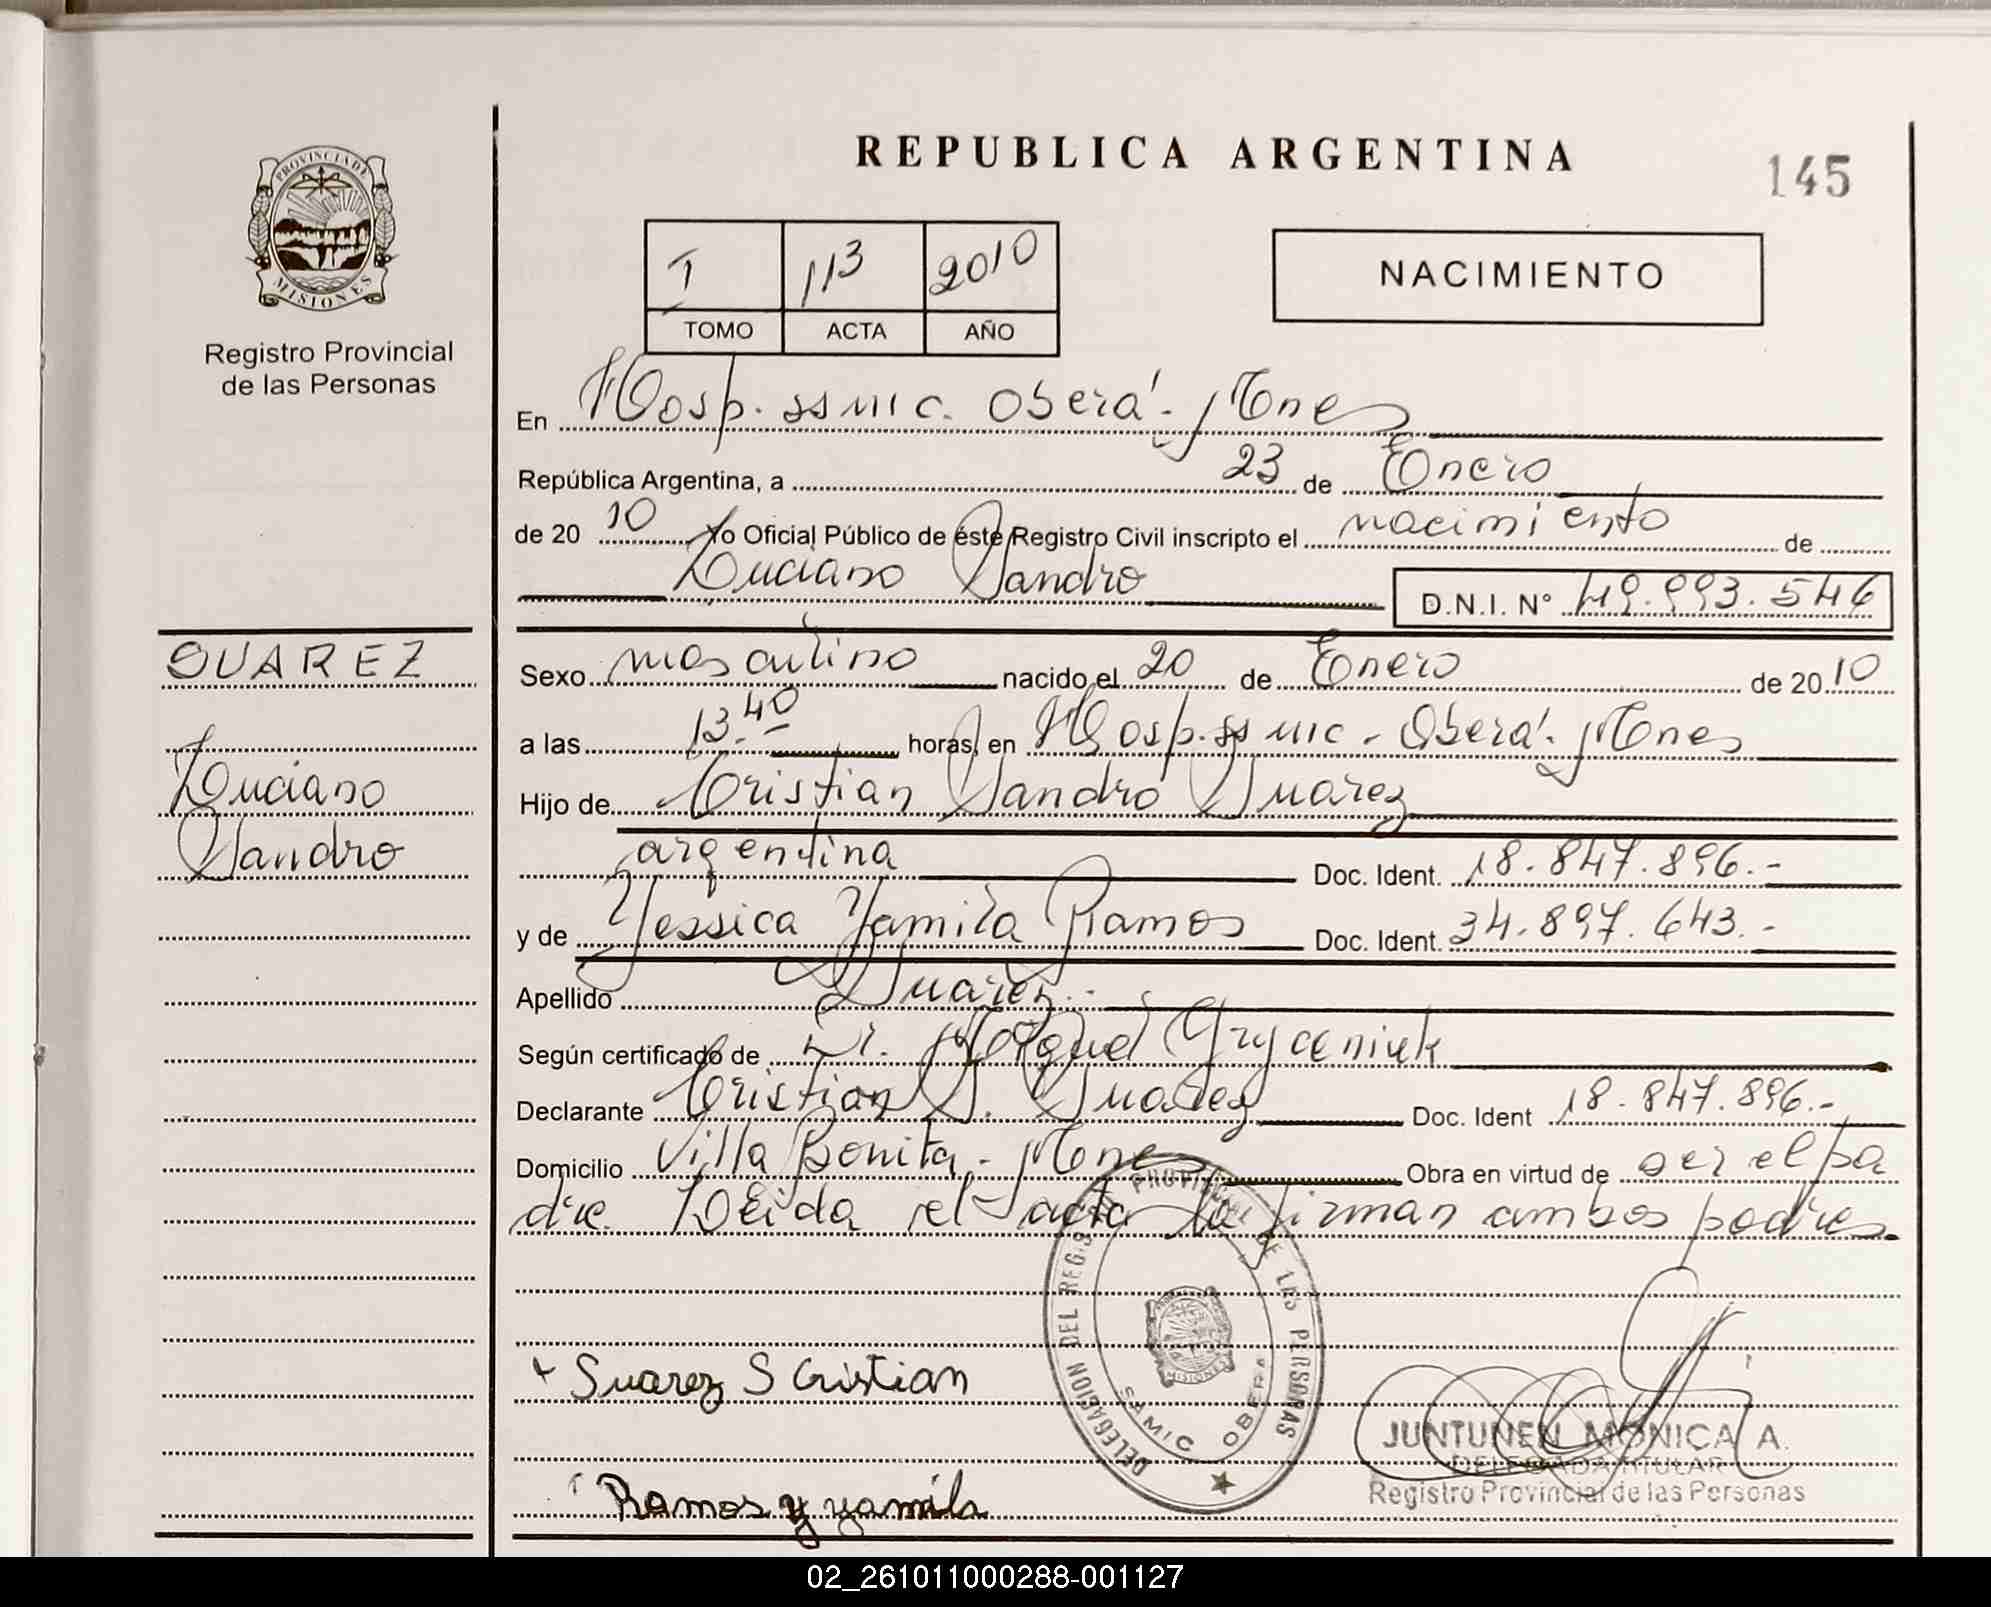 REPUBLICA ARGENTINA
145
PROVINCIA DE
MISIONES
Registro Provincial
de las Personas
I 113 2010
TOMO ACTA AÑO
NACIMIENTO
En Hosp. ssmic. Oberá - Mnes
República Argentina, a 23 de Enero
de 20 10 Yo Oficial Público de éste Registro Civil inscripto el nacimiento de
Luciano Sandro D.N.I. N° 49.993.546
SUAREZ
Luciano
Sandro
Sexo masculino nacido el 20 de Enero de 20 10
a las 13.40 horas, en Hosp. ssmic - Oberá - Mones
Hijo de Cristian Sandro Suarez
argentina Doc. Ident. 18.847.896.-
y de Yessica Yamila Ramos Doc. Ident. 34.897.643.-
Apellido Suarez.-
Según certificado de Dr. Miguel Gryceniuk
Declarante Cristian S. Suarez Doc. Ident 18.847.896.-
Domicilio Villa Bonita - Mones Obra en virtud de ser el pa
dre. Leida el acta la firman ambos padres.
DELEGACION DEL REGISTRO PROVINCIAL DE LAS PERSONAS
MISIONES
SAMIC OBERA
Suarez S Cristian
JUNTUNEN MONICA A.
DELEGADA TITULAR
Registro Provincial de las Personas
Ramos y yamila
02_261011000288-001127